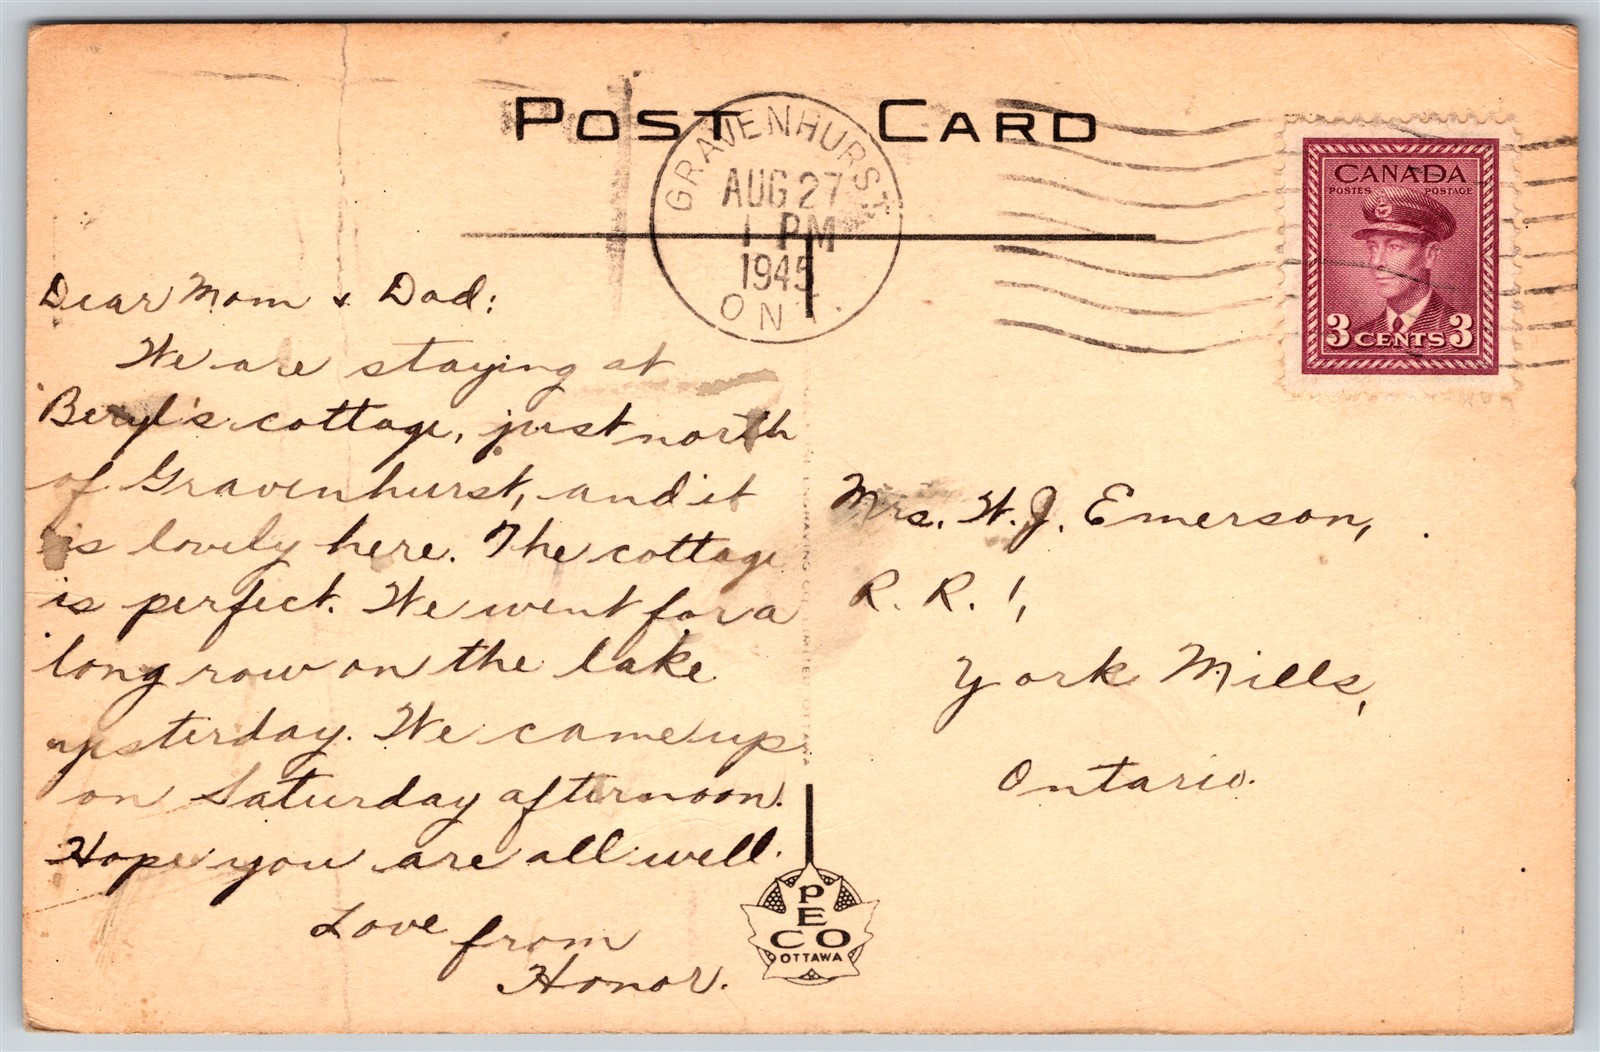 POST CARD
GRAVENHURST
AUG 27
1 PM
1945
ONT.
CANADA
POSTES POSTAGE
3 CENTS 3
Dear Mom & Dad:
We are staying at
Beryl's cottage, just north
of Gravenhurst, and it
is lovely here. The cottage
is perfect. We went for a
long row on the lake
yesterday. We came up
on Saturday afternoon.
Hope you are all well.
Love from
Honor.
Mrs. W. J. Emerson,
R. R. 1,
York Mills,
Ontario.
ENGRAVING CO. LIMITED OTTAWA
PECO
OTTAWA